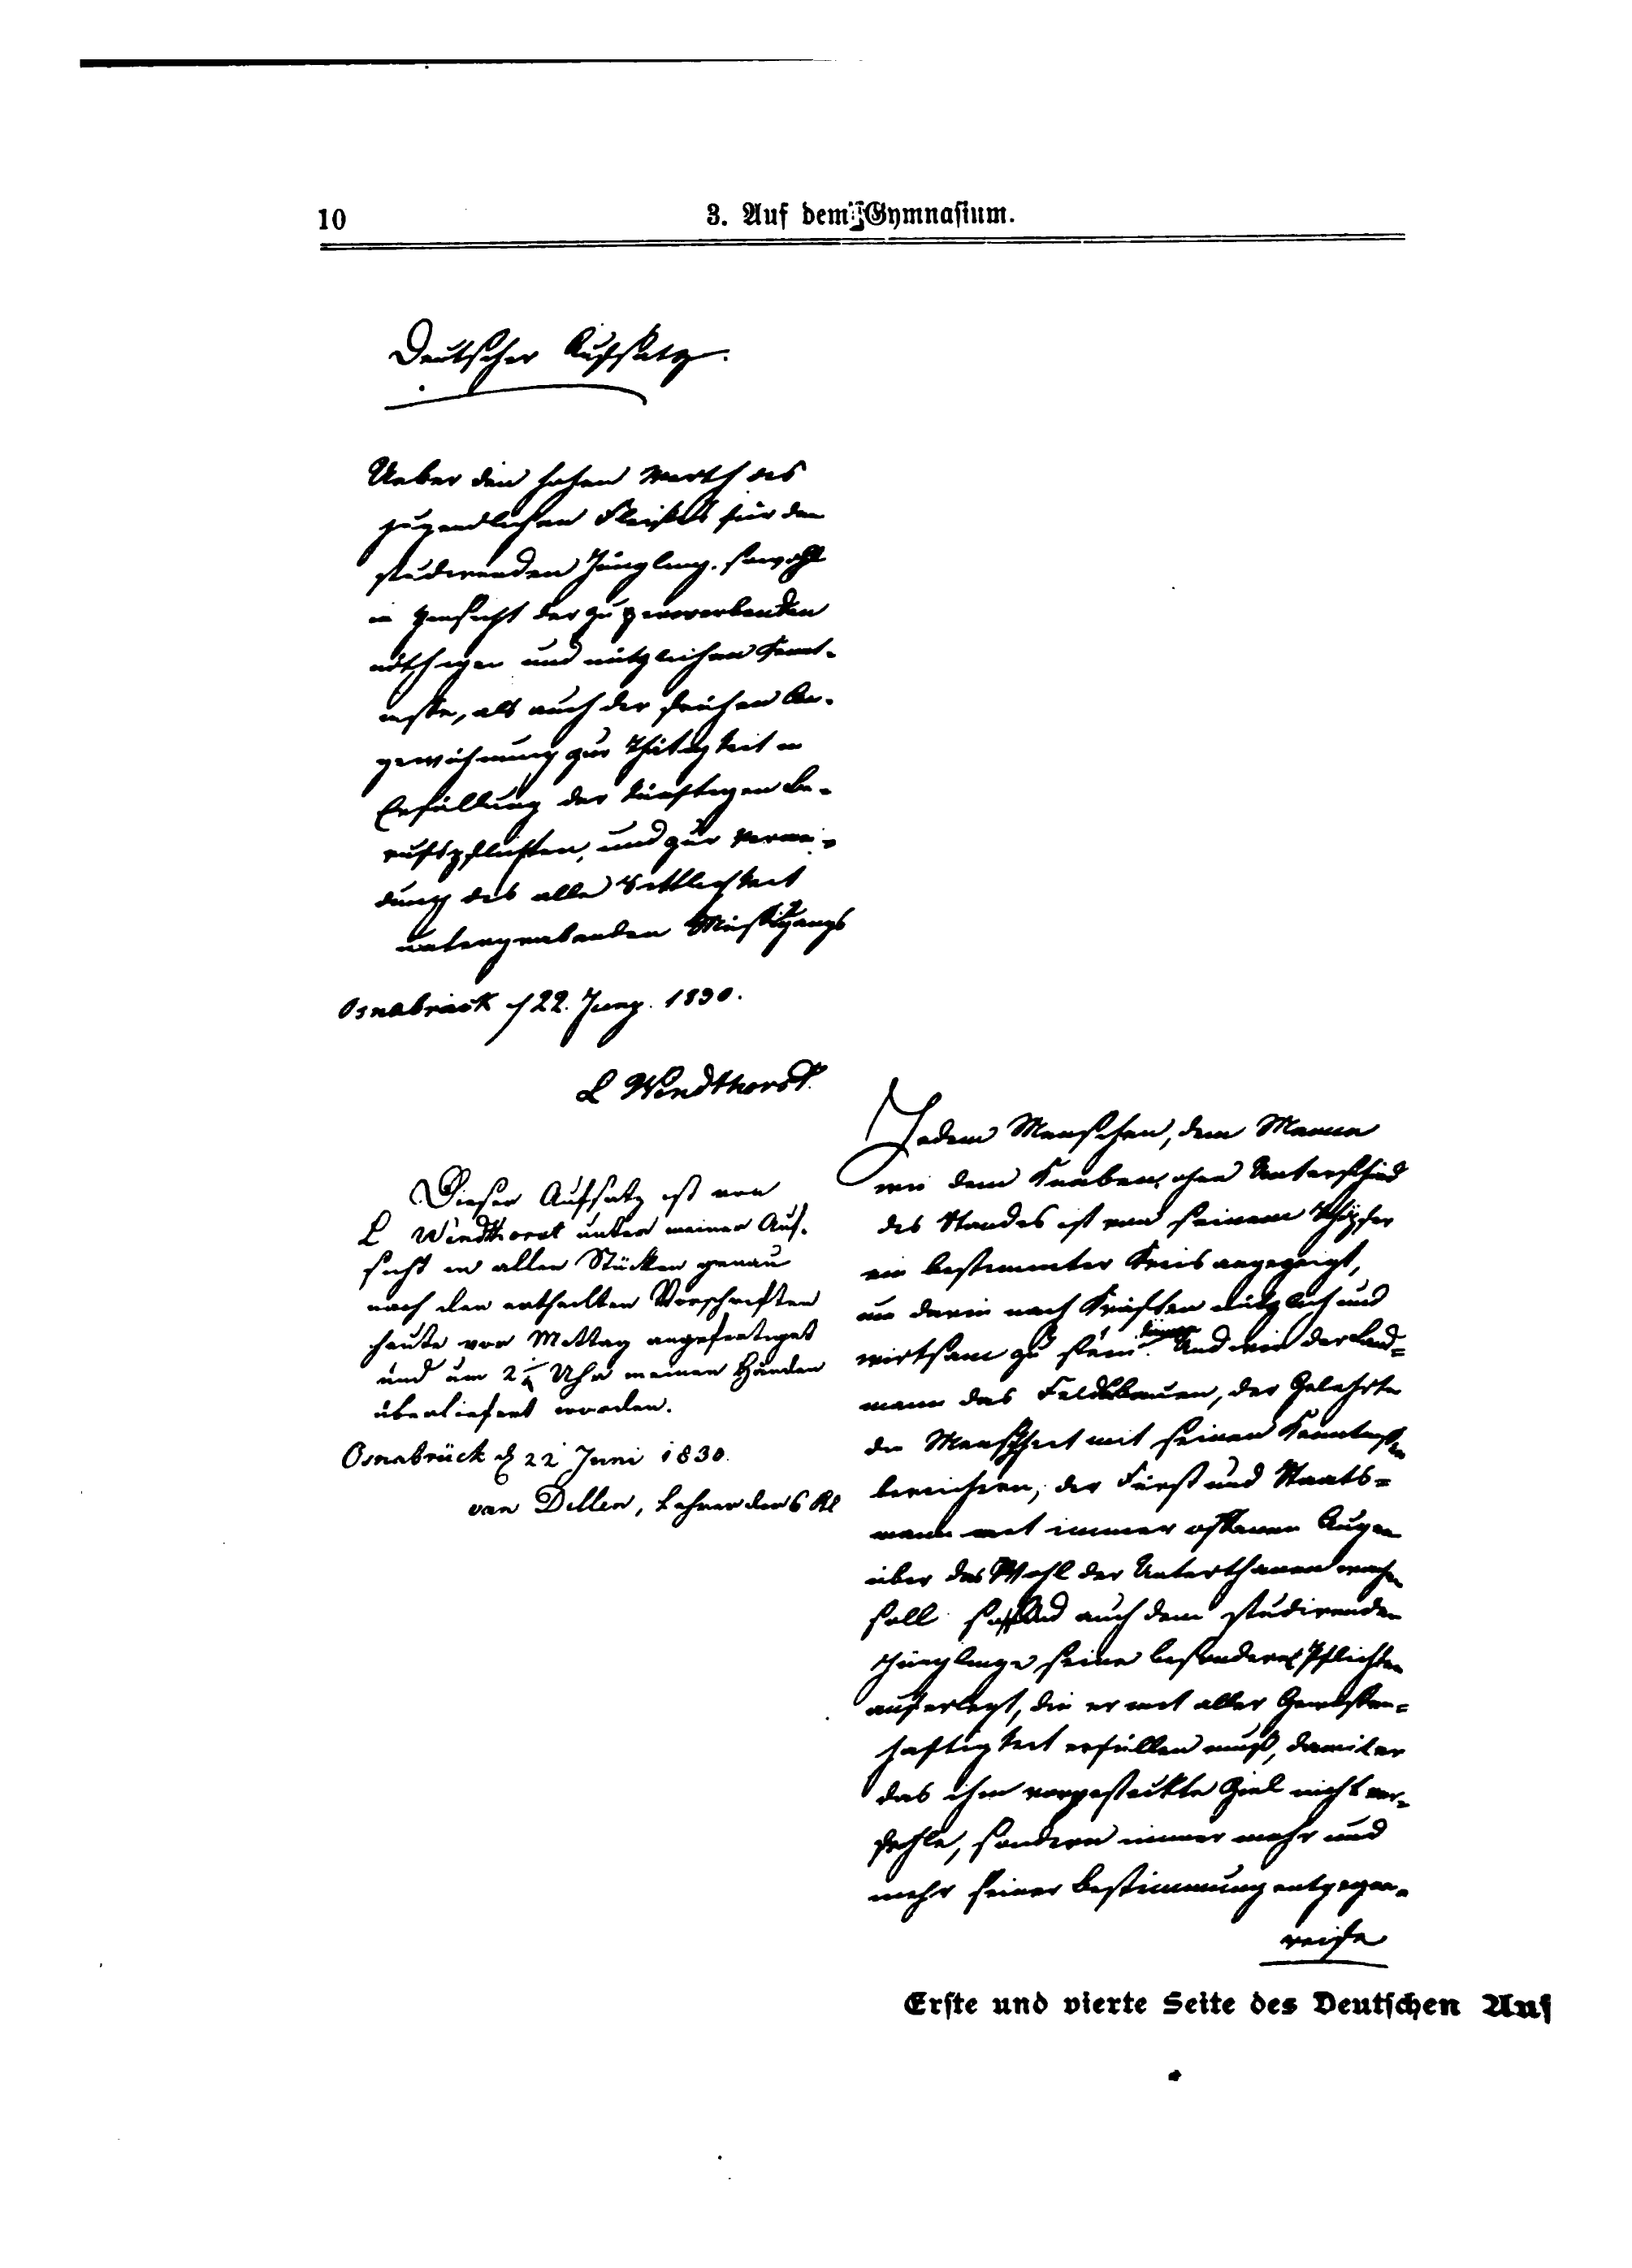 10
3. Auf dem Gymnasium.
Deutscher Aufsatz.
Ueber den hohen Werth des
jugendlichen Fleißes für den
studirenden Jüngling, sowohl
in Hinsicht der zu erwerbenden
nöthigen und nützlichen Kennt-
nisse, als auch der frühen An-
gewöhnung zur Thätigkeit in
Erfüllung der künftigen Be-
rufspflichten, und zur Vermei-
dung des alle Sittlichkeit
untergrabenden Müßiggangs
Osnabrück d 22. Juny. 1830.
L Windthorst.
Dieser Aufsatz ist von
L Windthorst unter meiner Auf-
sicht in allen Stücken genau
nach den ertheilten Vorschriften
heute vor Mittag angefertiget
und um 2 Uhr meinen Händen
überliefert worden.
Osnabrück d 22 Juni 1830.
van Dellen, Lehrer der 6 Kl
Jedem Menschen, dem Manne
wie dem Knaben, ohne Unterschied
des Standes ist von seinem Schöpfer
ein bestimmter Kreis angezeigt,
um darin nach Kräften nützlich und
wirksam zu sein. Und wie der Land-
mann das Feld bauen, der Gelehrte
die Menschheit mit seinen Kenntnissen
bereichern, der Fürst und Staats-
mann mit immer offenen Augen
über das Wohl der Unterthanen wachen
soll so sind auch dem studirenden
Jünglinge seine besonderen Pflichten
auferlegt, die er mit aller Gewissen-
haftigkeit erfüllen muß, damit er
das ihm vorgesteckte Ziel nicht ver-
fehle, sondern immer mehr und
mehr seiner Bestimmung entgegen-
reife
Erste und vierte Seite des Deutschen Auf